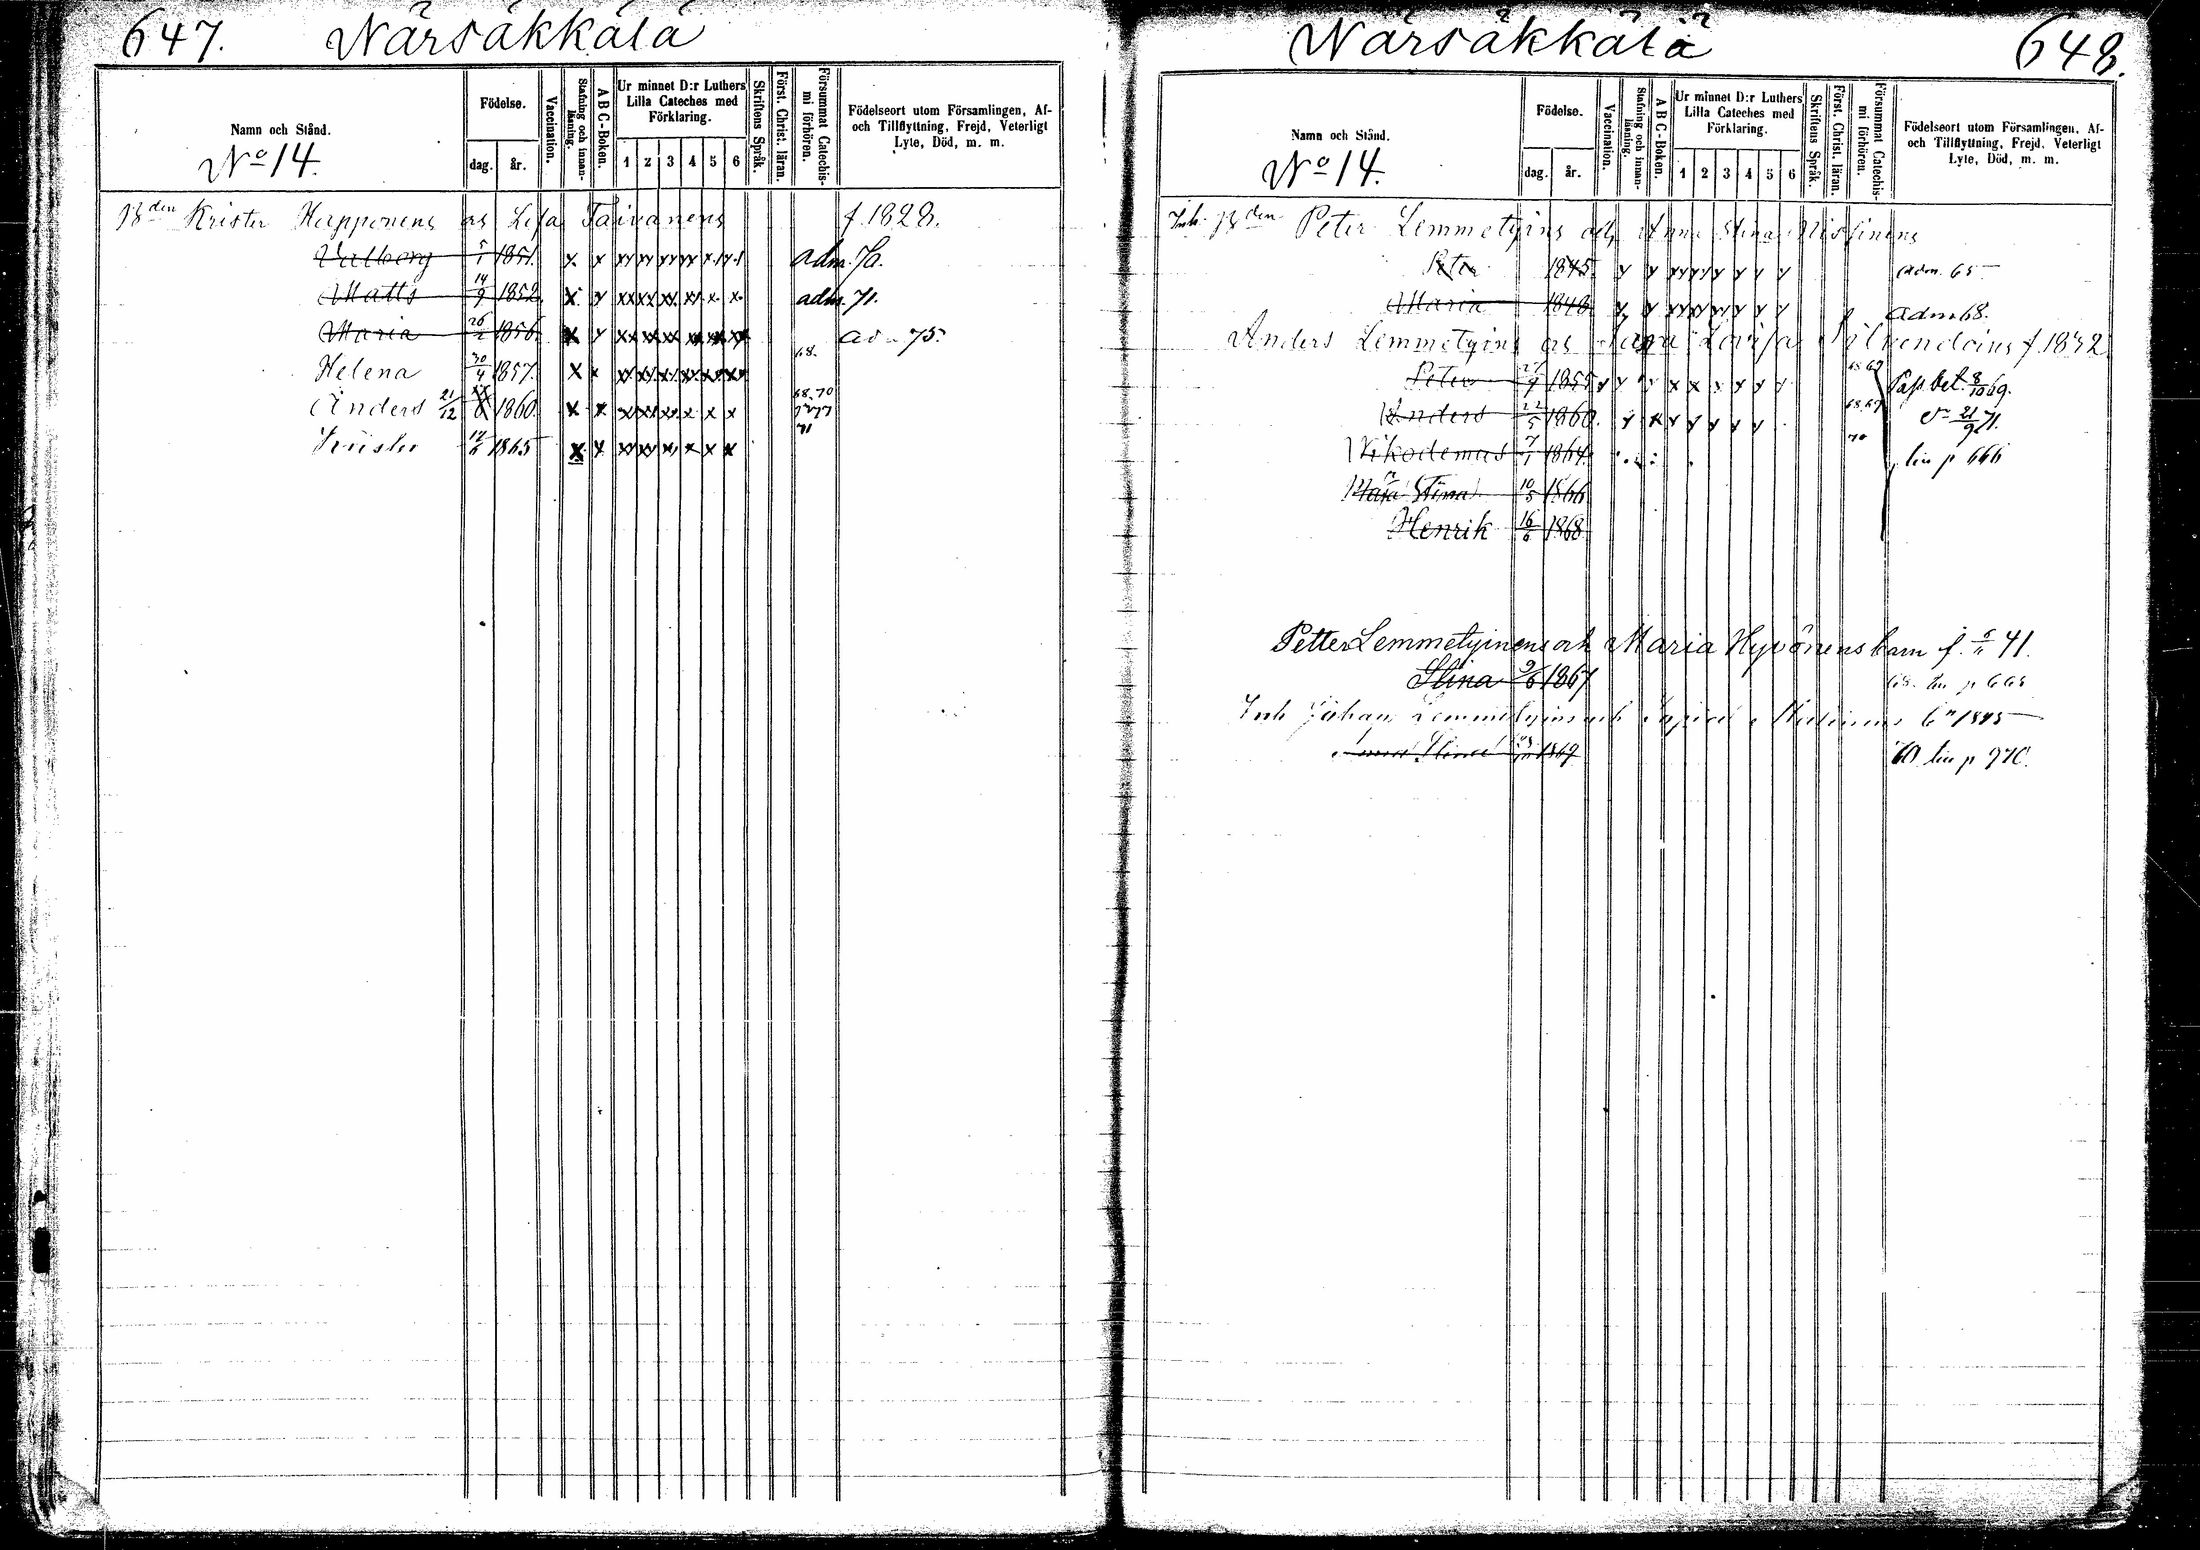 647. Närsäkkälä
Namn och Stånd.
No 14.
Födelse.
dag. år.
Vaccination.
Stafning och innan-läsning.
A B C-Boken.
Ur minnet D:r Luthers Lilla Cateches med Förklaring.
1 2 3 4 5 6
Skriftens Språk.
Först. Christ. läran.
Försummat Catechis-mi förhören.
Födelseort utom Församlingen, Af- och Tillflyttning, Frejd, Veterligt Lyte, Död, m. m.
Bden Krister Happonens as Lisa Taivanens f. 1828.
Valborg 5/1 1851. adm. 70.
Matts 14/9 1852 adm. 71.
Maria 26/2 1856. 75.
Helena 30/4 1857. 68.
Anders 21/12 1860. 68. 70
Krister 1865 71
Närsäkkälä 648.
Namn och Stånd.
No 14.
Födelse.
dag. år.
Vaccination.
Stafning och innan-läsning.
A B C-Boken.
Ur minnet D:r Luthers Lilla Cateches med Förklaring.
1 2 3 4 5 6
Skriftens Språk.
Först. Christ. läran.
Försummat Catechis-mi förhören.
Födelseort utom Församlingen, Af- och Tillflyttning, Frejd, Veterligt Lyte, Död, m. m.
Inh. Bden Peter Lemmetyins och Anna Stina Nissinens
Peter 1845 adm. 65
Maria 1848 adm 68.
Anders Lemmetyins as Lovisa f. 1832
Peter 1855 68 69 Pass bet. 8/10 69.
Anders 22/5 1860. 68 69 21/9 71.
Nikodemus 7/1 1864. 70 liu p 666
Maja Stina 10/5 1866
Henrik 16/6 1868
Petter Lemmetyinens och Maria Hyvönens barn f. 41.
Stina 2/6 1867 68. liu p 668
Inh Johan Lemmetyins och 1845
Anna Stina 1869 70 liu p 970.